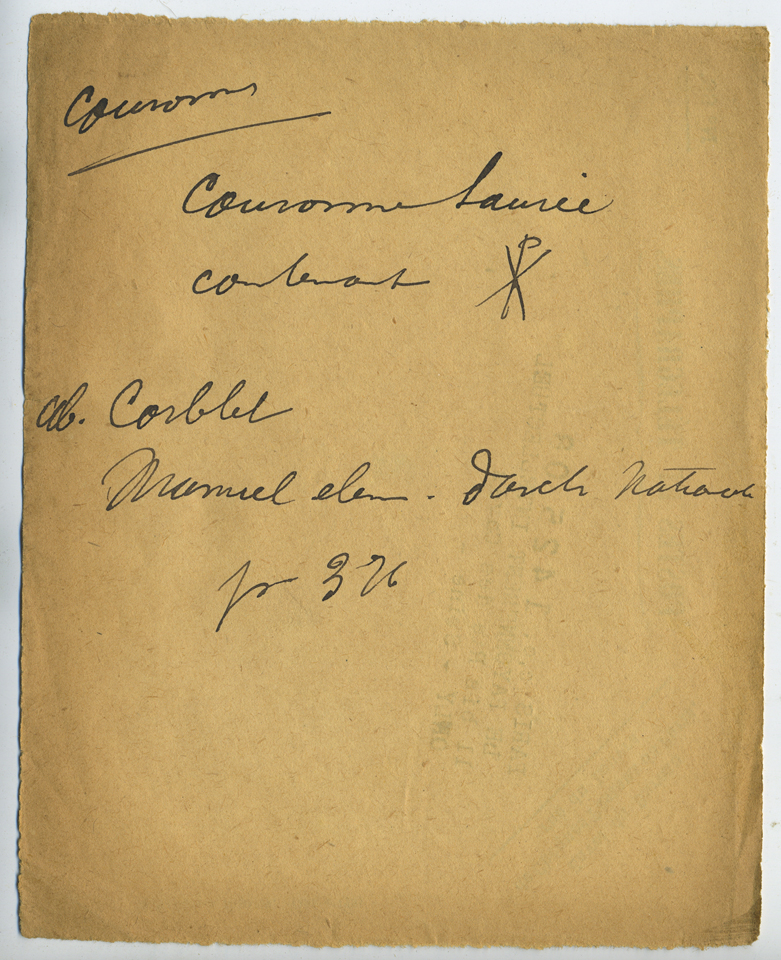 Couronnes
Couronne laurée
contenant ☧
ab. Corblet
Manuel elem. d'arch nationale
p 376